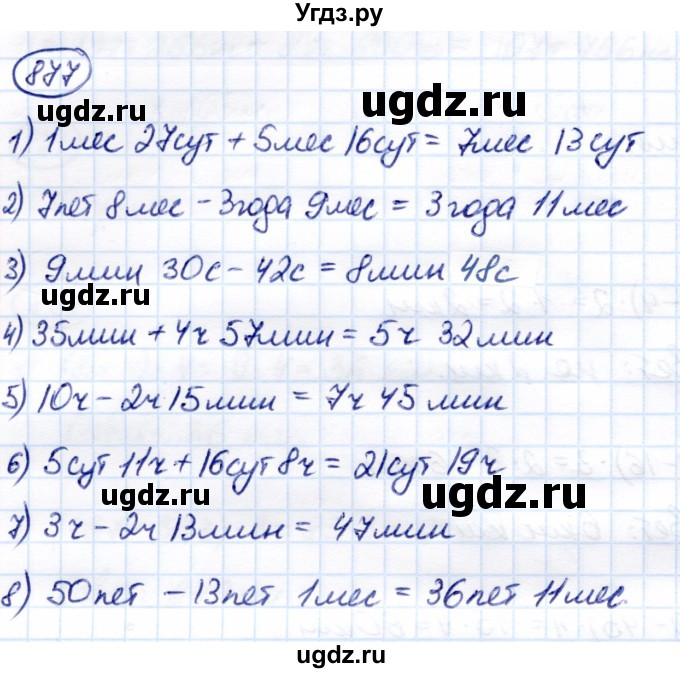 Угдз.ру
877
ugdz.ru
ugdz.ru
1) 1мес 27сут + 5мес 16сут = 7мес 13сут
2) 7лет 8мес - 3года 9мес = 3года 11мес
3) 9мин 30с - 42с = 8мин 48с
ugdz.ru
4) 35мин + 4ч 57мин = 5ч 32мин
5) 10ч - 2ч 15мин = 7ч 45мин
6) 5сут 11ч + 16сут 8ч = 21сут 19ч
ugdz.ru
ugdz.ru
7) 3ч - 2ч 13мин = 47мин
8) 50лет - 13лет 1мес = 36лет 11мес
ugdz.ru